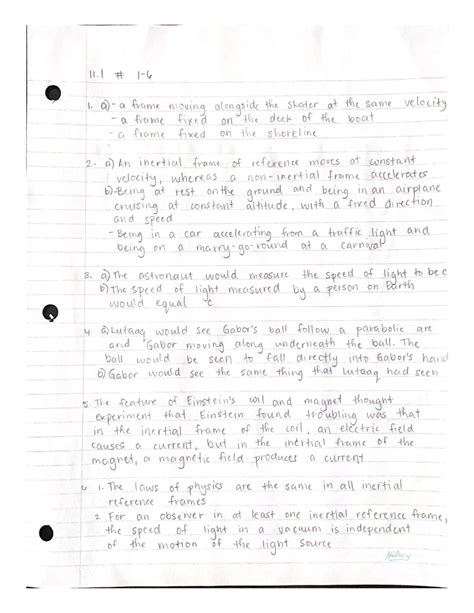 11.1 # 1-6
1. a) - a frame moving alongside the skater at the same velocity
- a frame fixed on the deck of the boat
- a frame fixed on the shoreline
2. a) An inertial frame of reference moves at constant
velocity, whereas a non-inertial frame accelerates
b) Being at rest on the ground and being in an airplane
cruising at constant altitude, with a fixed direction
and speed
- Being in a car accelerating from a traffic light and
being on a marry-go-round at a carnival
3. a) The astronaut would measure the speed of light to be c
b) The speed of light measured by a person on Earth
would equal c
4. a) Lutaaq would see Gabor's ball follow a parabolic arc
and Gabor moving along underneath the ball. The
ball would be seen to fall directly into Gabor's hand
b) Gabor would see the same thing that Lutaaq had seen
5. The feature of Einstein's coil and magnet thought
experiment that Einstein found troubling was that
in the inertial frame of the coil, an electric field
causes a current, but in the inertial frame of the
magnet, a magnetic field produces a current
6 1. The laws of physics are the same in all inertial
reference frames
2 For an observer in at least one inertial reference frame,
the speed of light in a vacuum is independent
of the motion of the light source